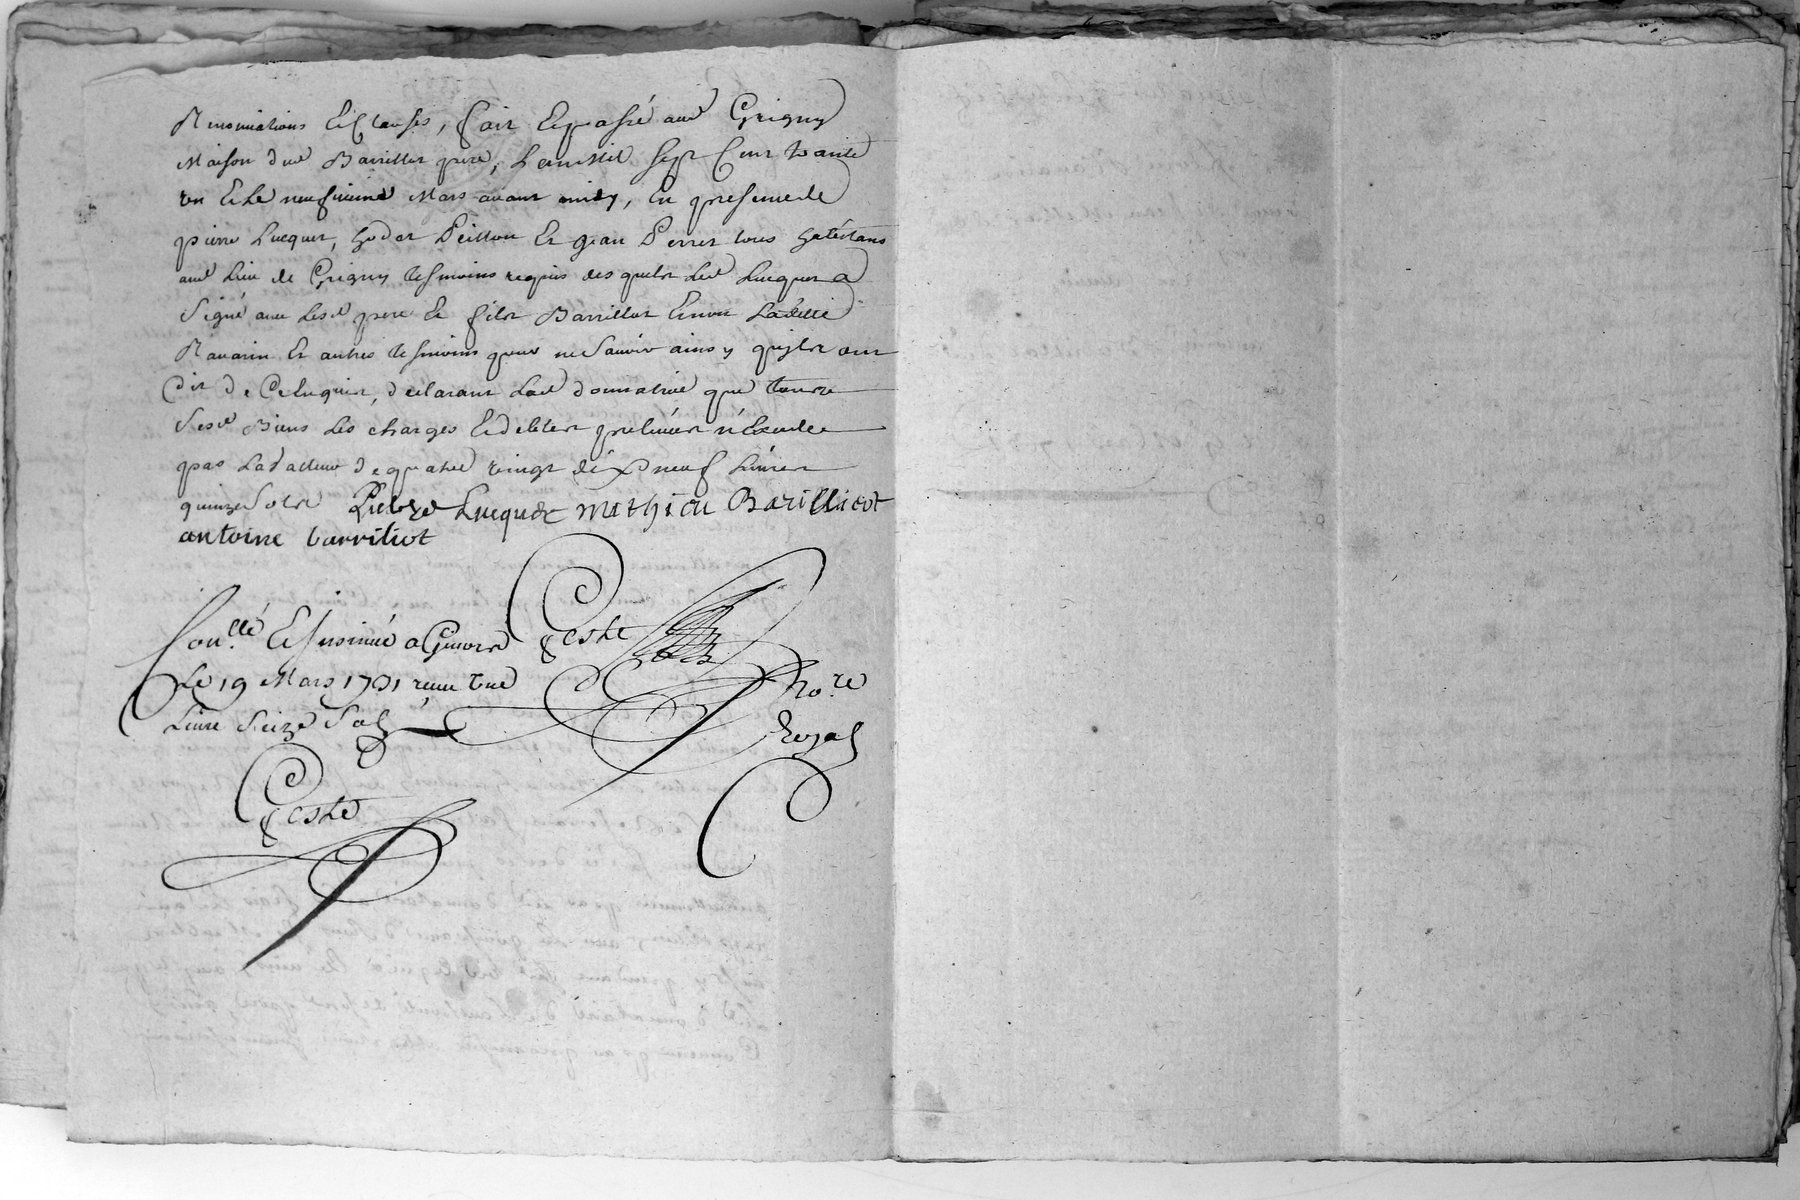 Renonciations Et Clauses, fait Et passé aud Grigny
Maison dud Barrillot pere, Lan Mil Sept Cent trante
un Et Le neufvieme Mars avant midy, En presence de
pierre Lucquet, Peillon Et Jean Perret tous habitans
aud Lieu de Grigny tesmoins requis des quels Led Lucquet a
Signé avec Lesd pere Et fils Barrillot Et non Ladette
Navarin Et autres tesmoins pour ne Savoir ainsy quils ont
Dit de Ce Enquis, declarant Lad donnatrice que toutes
Sesd Biens Les charges Et debtes prelevées n'Excedee
pas La valleur de quatre vingt dix neuf Livres
quinze Sols Pierre Lucquet mathieu Barilliot
antoine barriliot
Con.llé Et Insinué a Givors Geste
Le 19 Mars 1731 receu une No.re
Livre Seize Sols Royal
Geste